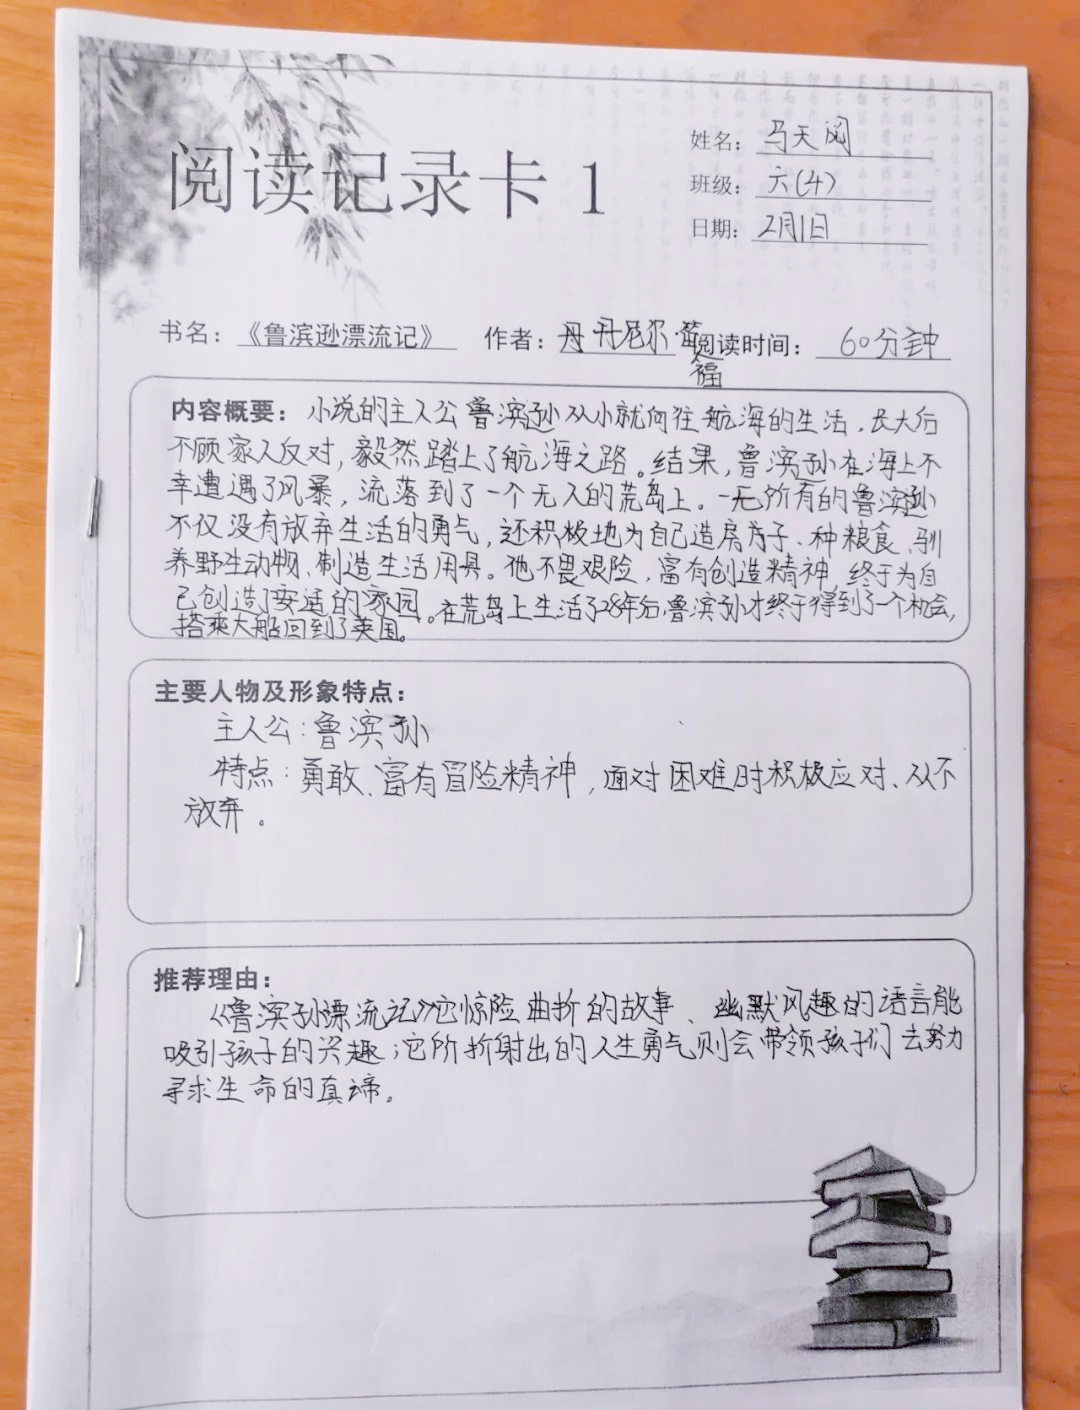 阅读记录卡 1
姓名：马天
班级：六(4)
日期：2月1日
书名：《鲁滨逊漂流记》 作者：丹尼尔·笛福 阅读时间：60分钟
内容概要：小说的主人公鲁滨逊从小就向往航海的生活，长大后
不顾家人反对，毅然踏上了航海之路。结果，鲁滨孙在海上不
幸遭遇了风暴，流落到了一个无人的荒岛上。一无所有的鲁滨逊
不仅没有放弃生活的勇气，还积极地为自己造房子、种粮食、驯
养野生动物、制造生活用具。他不畏艰险，富有创造精神，终于为自
己创造了安适的家园。在荒岛上生活了28年后，鲁滨孙才终于得到了一个机会，
搭乘大船回到了英国。
主要人物及形象特点：
主人公：鲁滨孙
特点：勇敢、富有冒险精神，面对困难时积极应对、从不
放弃。
推荐理由：
《鲁滨孙漂流记》它惊险曲折的故事、幽默风趣的语言能
吸引孩子的兴趣；它所折射出的人生勇气则会带领孩子们去努力
寻求生命的真谛。